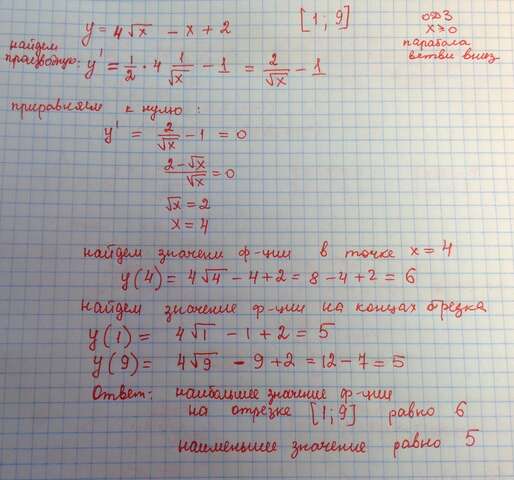 y = 4√x − x + 2
[1; 9]
ОДЗ
x ≥ 0
парабола
ветви вниз
найдем
производную: y' = 1/2 · 4 1/√x − 1 = 2/√x − 1
приравняем к нулю:
y' = 2/√x − 1 = 0
2−√x/√x = 0
√x = 2
x = 4
найдем значени ф-ции в точке x = 4
y(4) = 4√4 − 4 + 2 = 8 − 4 + 2 = 6
найдем значение ф-ции на концах отрезка
y(1) = 4√1 − 1 + 2 = 5
y(9) = 4√9 − 9 + 2 = 12 − 7 = 5
Ответ: наибольшее значение ф-ции
на отрезке [1; 9] равно 6
наименьшее значение равно 5